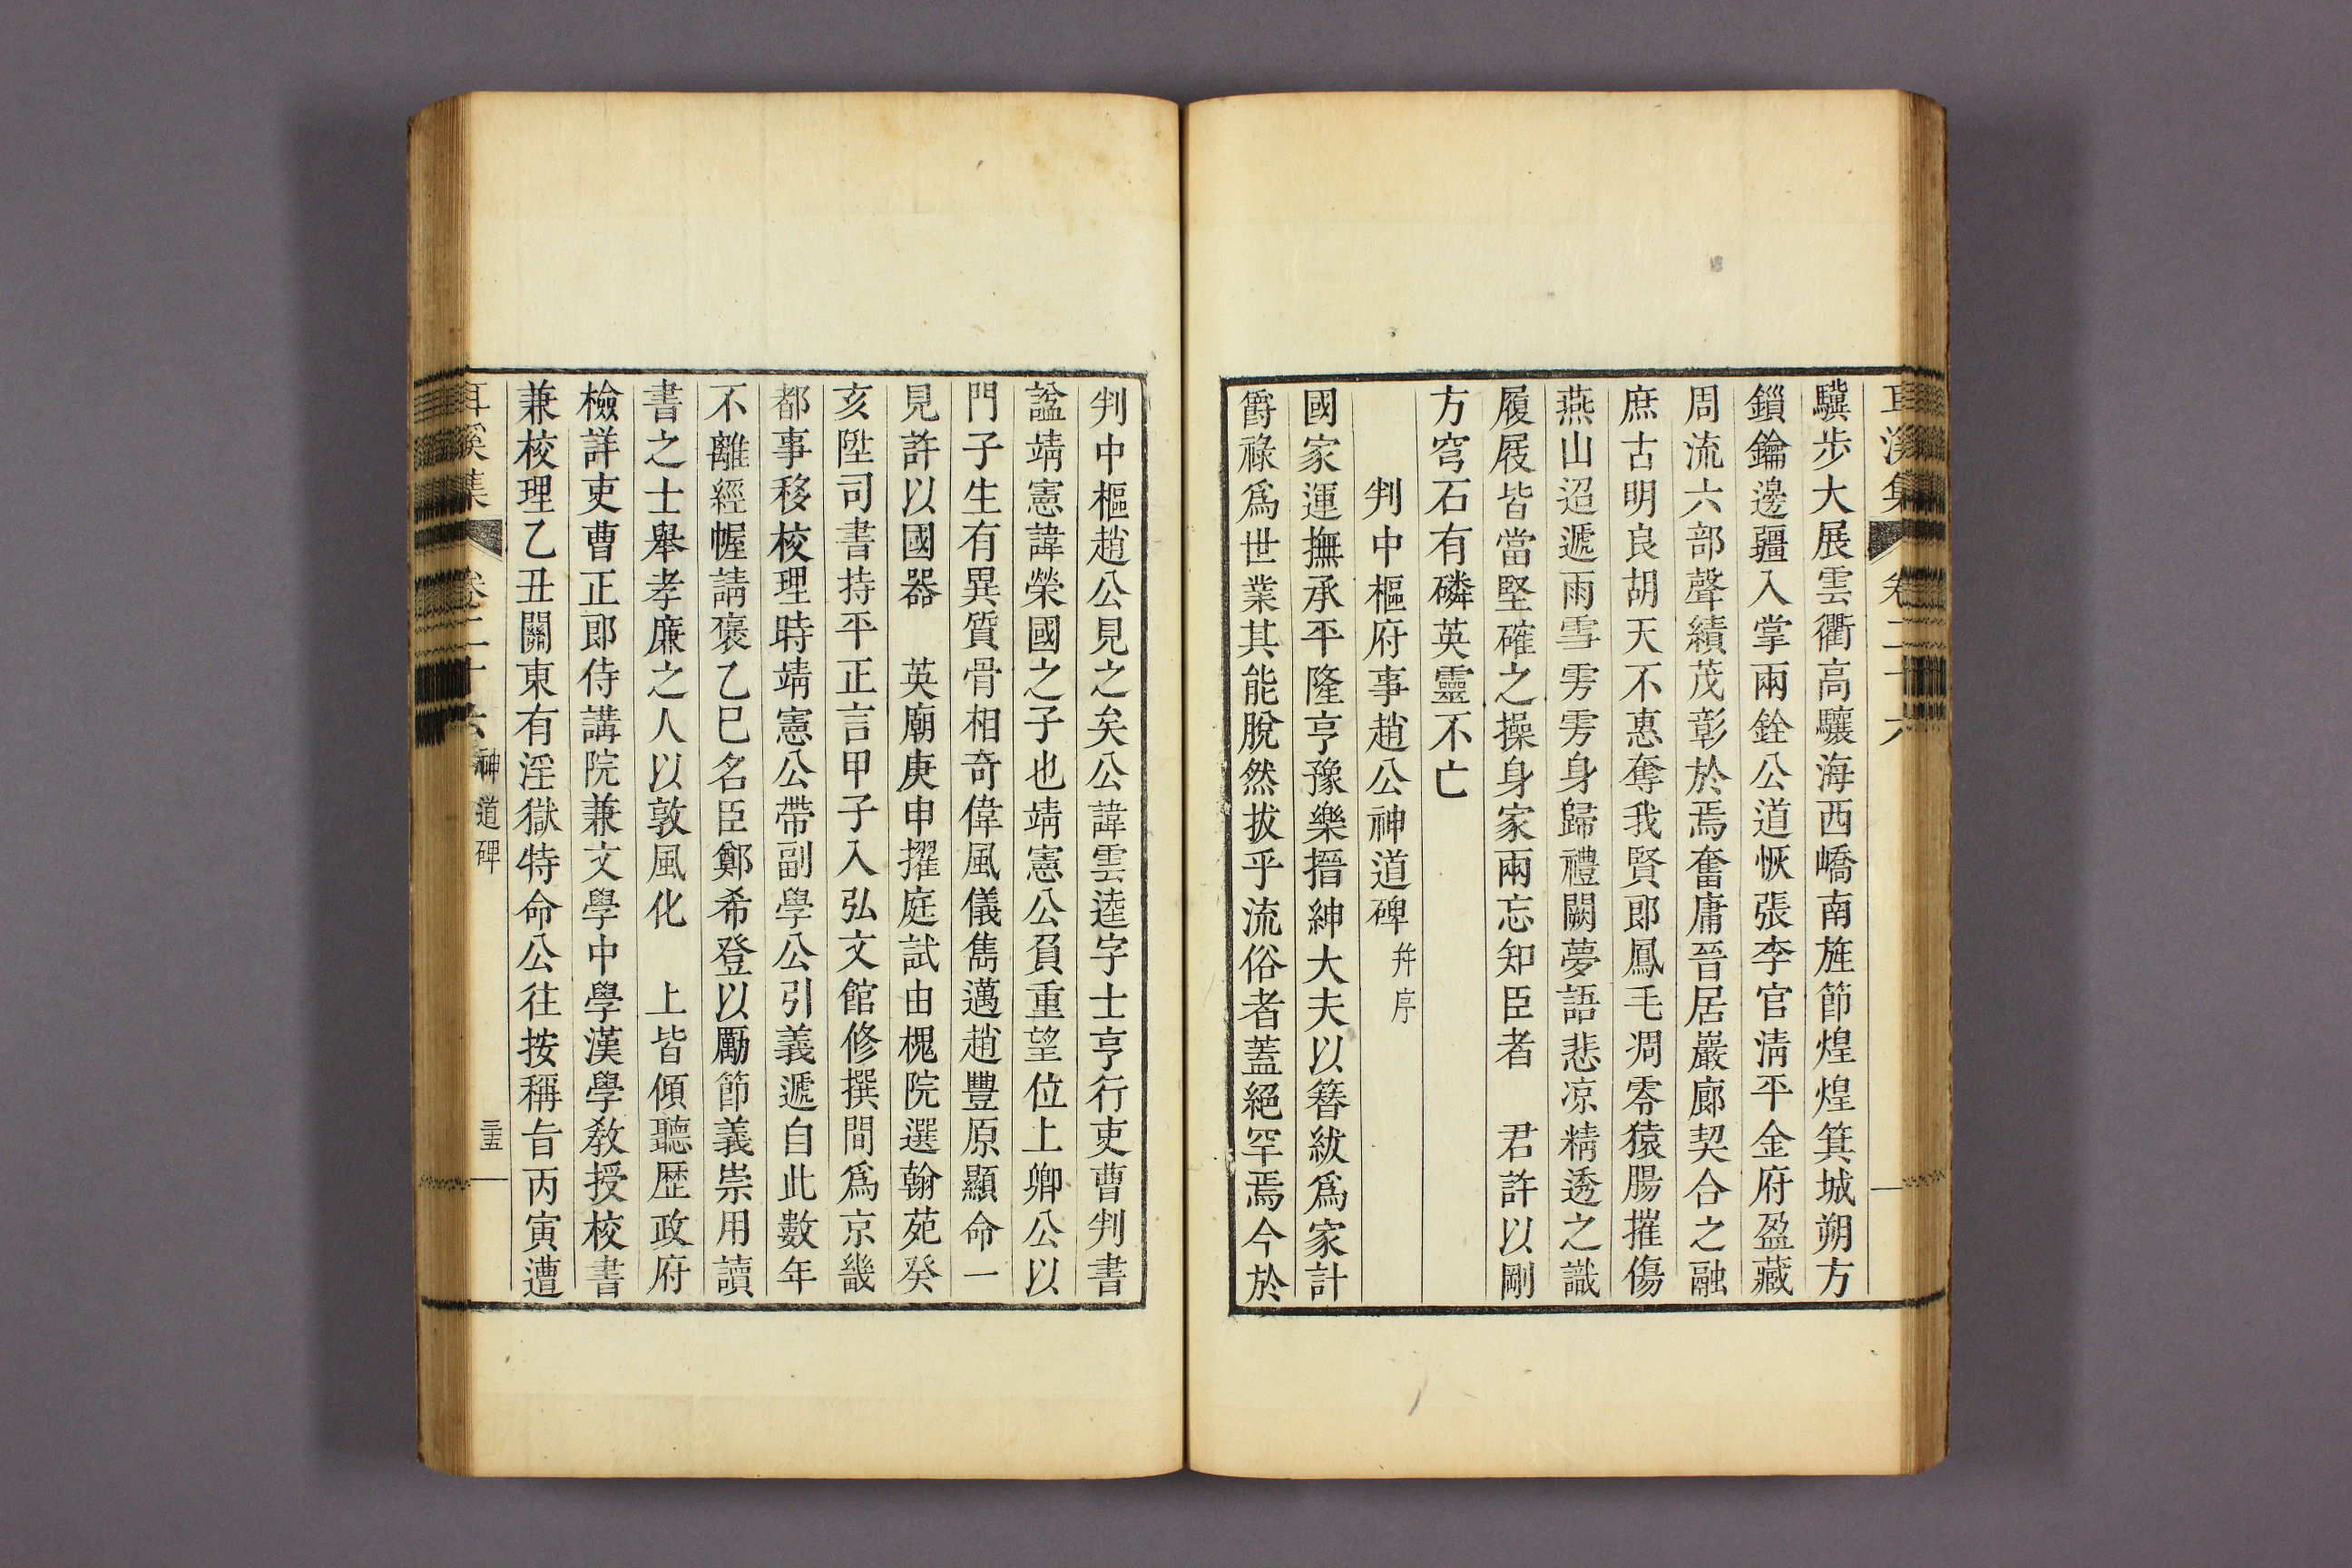 耳溪集 卷二十六
驥步大展雲衢高驤海西嶠南旌節煌煌箕城朔方
鎻鑰邊疆入掌兩銓公道恢張李官淸平金府盈藏
周流六部聲績茂彰於焉奮庸晉居巖廊契合之融
庶古明良胡天不惠奪我賢郎鳳毛凋零猿膓摧傷
燕山迢遞雨雪雱雱身歸禮闕夢語悲凉精透之識
履屐皆當堅確之操身家兩忘知臣者 君許以剛
方穹石有磷英靈不亡
判中樞府事趙公神道碑 幷序
國家運撫承平隆亨豫樂搢紳大夫以簪紱爲家計
爵祿爲世業其能脫然拔乎流俗者蓋絕罕焉今於
判中樞趙公見之矣公諱雲逵字士亨行吏曹判書
諡靖憲諱榮國之子也靖憲公負重望位上卿公以
門子生有異質骨相奇偉風儀雋邁趙豐原顯命一
見許以國器 英廟庚申擢庭試由槐院選翰苑癸
亥陞司書持平正言甲子入弘文館修撰間爲京畿
都事移校理時靖憲公帶副學公引義遞自此數年
不離經幄請褒乙巳名臣鄭希登以勵節義崇用讀
書之士舉孝廉之人以敦風化 上皆傾聽歷政府
檢詳吏曹正郎侍講院兼文學中學漢學敎授校書
兼校理乙丑關東有淫獄特命公往按稱旨丙寅遭
耳溪集 卷二十六 神道碑 三五